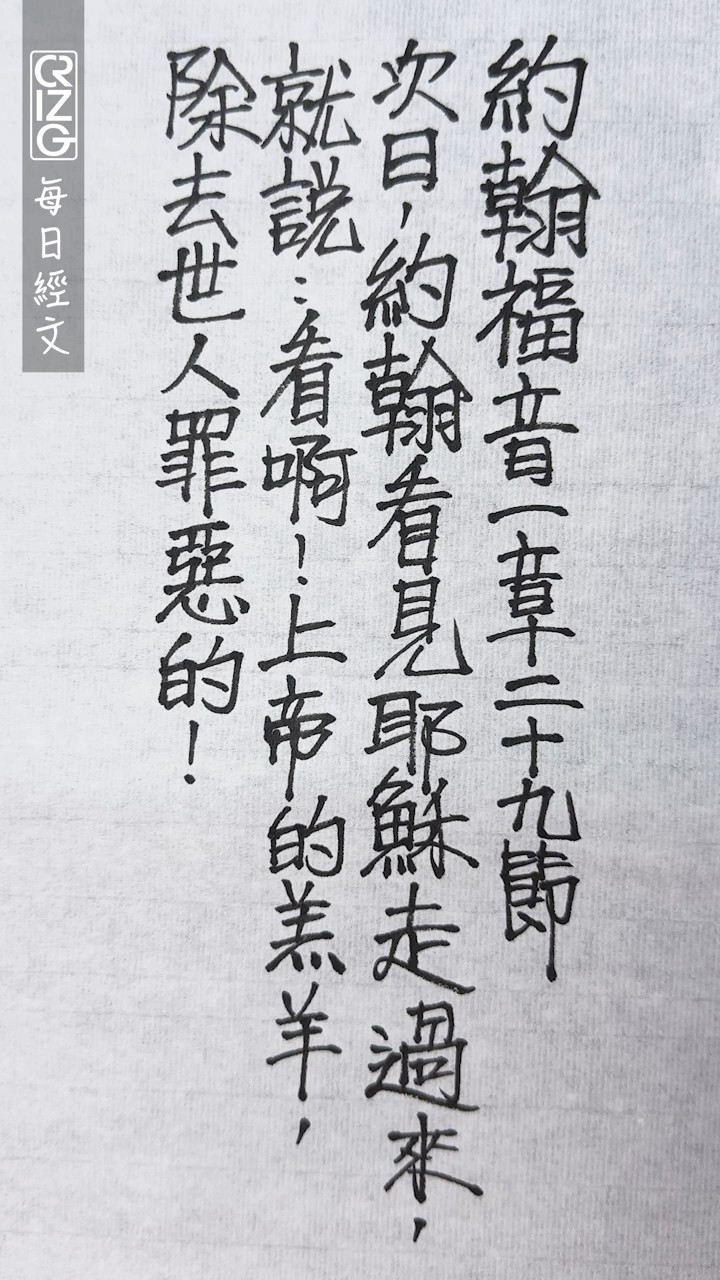 約翰福音一章二十九節
次日，約翰看見耶穌走過來，
就説：看啊！上帝的羔羊，
除去世人罪惡的！
CRIZG
每日經文